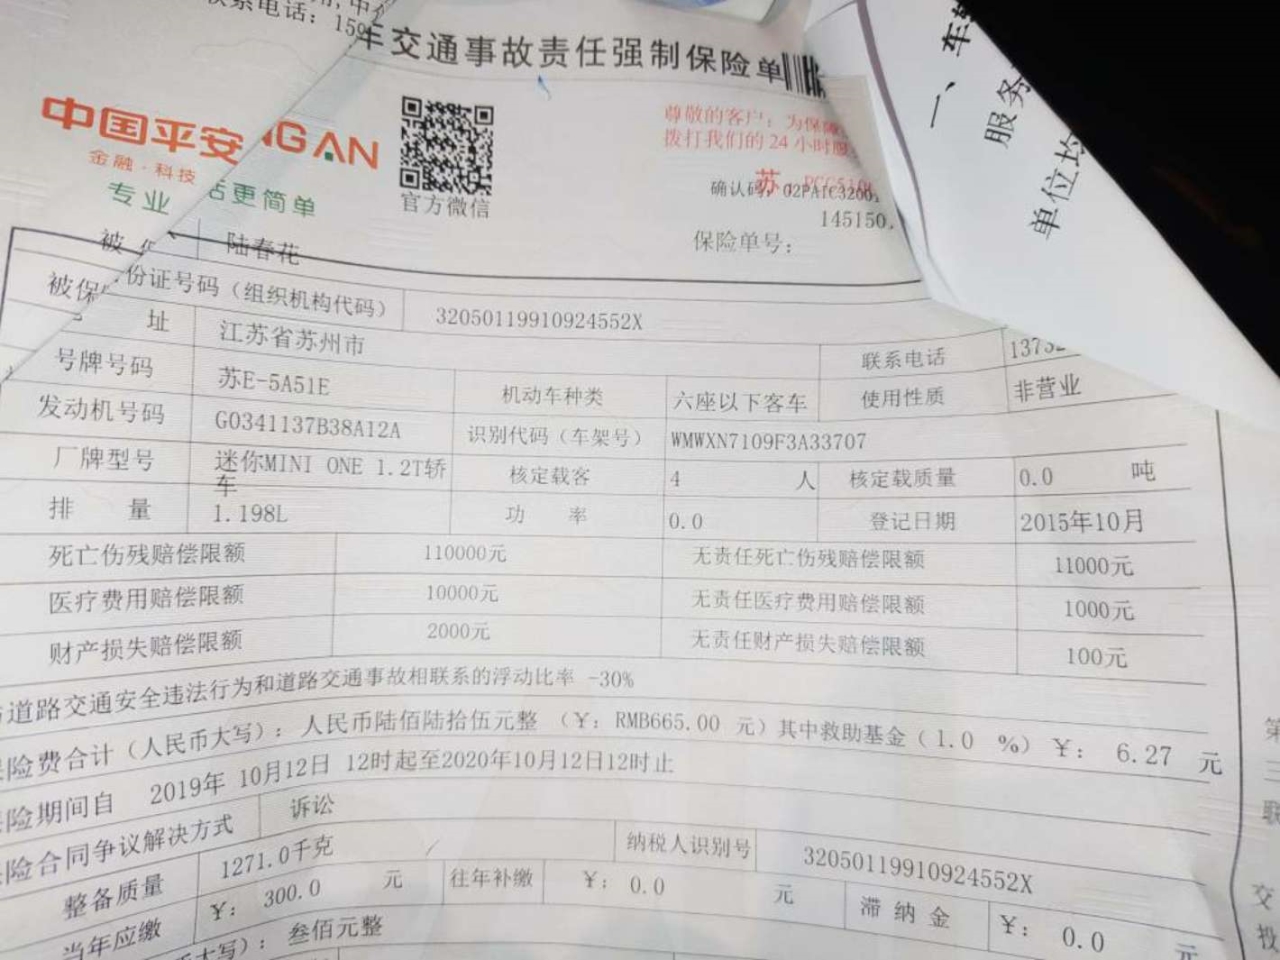 联系电话：159
车交通事故责任强制保险单
一、车
服务
单位均
中国平安 NGAN
金融·科技
专业 活更简单
官方微信
尊敬的客户：为保障
拨打我们的24小时服
苏
确认码：02PAIC3200
145150
保险单号：
被 保 陆春花
被保 份证号码（组织机构代码） 32050119910924552X
址 江苏省苏州市 联系电话 1373
号牌号码 苏E-5A51E 机动车种类 六座以下客车 使用性质 非营业
发动机号码 G0341137B38A12A 识别代码（车架号） WMWXN7109F3A33707
厂牌型号 迷你MINI ONE 1.2T轿车 核定载客 4 人 核定载质量 0.0 吨
排 量 1.198L 功 率 0.0 登记日期 2015年10月
死亡伤残赔偿限额 110000元 无责任死亡伤残赔偿限额 11000元
医疗费用赔偿限额 10000元 无责任医疗费用赔偿限额 1000元
财产损失赔偿限额 2000元 无责任财产损失赔偿限额 100元
道路交通安全违法行为和道路交通事故相联系的浮动比率 -30%
险费合计（人民币大写）：人民币陆佰陆拾伍元整 （¥：RMB665.00 元）其中救助基金（1.0 %）¥：6.27 元
险期间自 2019年 10月12日 12时起至2020年10月12日12时止
险合同争议解决方式 诉讼
整备质量 1271.0千克 纳税人识别号 32050119910924552X
当年应缴 ¥：300.0 元 往年补缴 ¥：0.0 元 滞纳金 ¥：0.0 元
大写）：叁佰元整
第三联
交
投